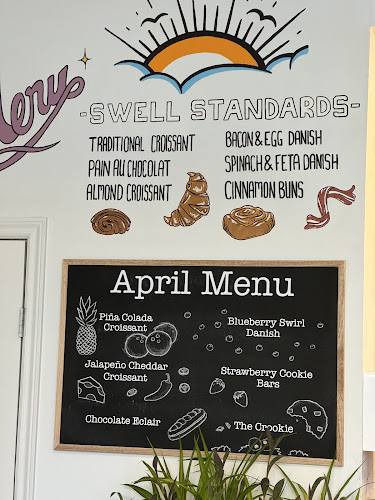 -SWELL STANDARDS-
TRADITIONAL CROISSANT
PAIN AU CHOCOLAT
ALMOND CROISSANT
BACON & EGG DANISH
SPINACH & FETA DANISH
CINNAMON BUNS
April Menu
Piña Colada
Croissant
Blueberry Swirl
Danish
Jalapeño Cheddar
Croissant
Strawberry Cookie
Bars
Chocolate Eclair
The Crookie